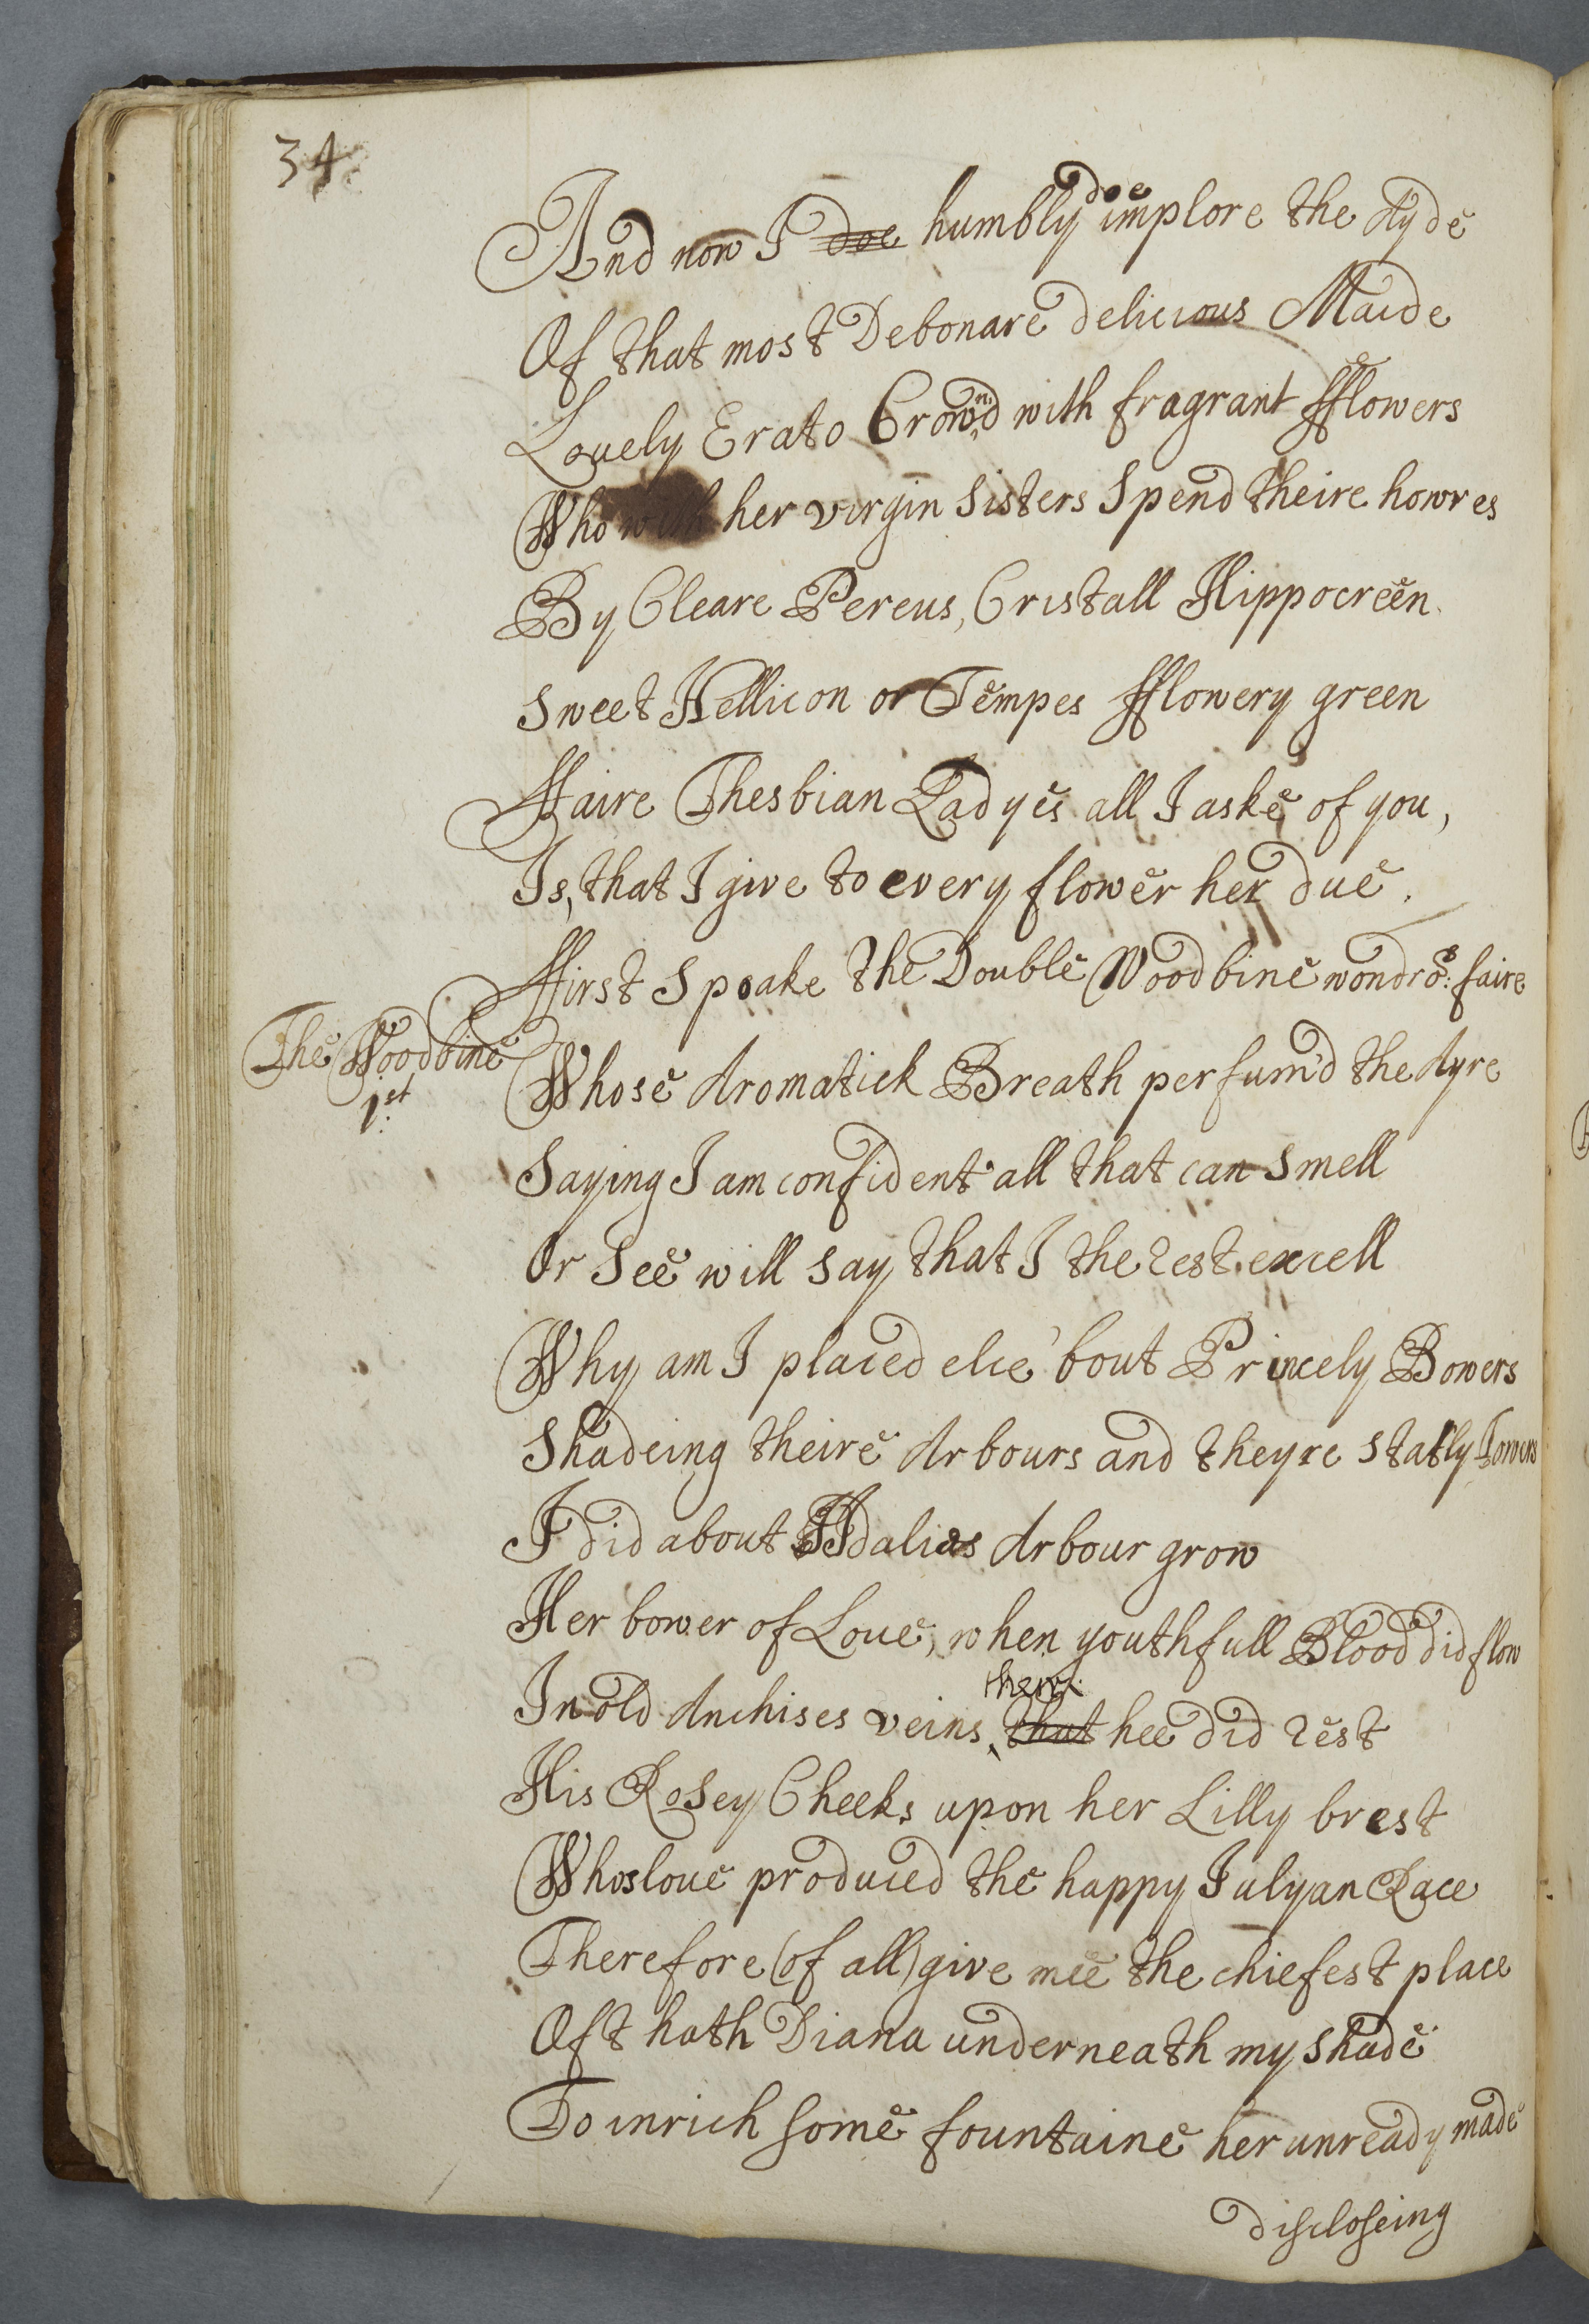 34
And now I doe humbly doe implore the Ayde
Of that most Debonare delicious Maide
Louely Erato Crownd with fragrant fflowers
Who with her virgin Sisters Spend theire howres
By Cleare Pereus, Cristall Hippocreen
Sweet Hellicon or Tempes fflowery green
ffaire Thesbian Ladyes all I aske of you,
Is, that I give to every flower her due.
ffirst Spoake the Double Woodbine wondro:s faire
The Woodbine
1st
Whose Aromatick Breath perfum'd the Ayre
Saying I am confident all that can Smell
Or See will say that I the rest excell
Why am I placed elce 'bout Princely Bowers
Shadeing theire Arbours and theyre Statly Towers
I did about Idalias Arbour grow
Her bower of Loue, when youthfull Blood did flow
In old Anchises veins, that then hee did rest
His Rosey Cheeks upon her Lilly brest
Whos loue produced the happy Iulyan Race
Therefore (of all) give mee the chiefest place
Oft hath Diana underneath my Shade
To inrich some fountaine her unready made
discloseing